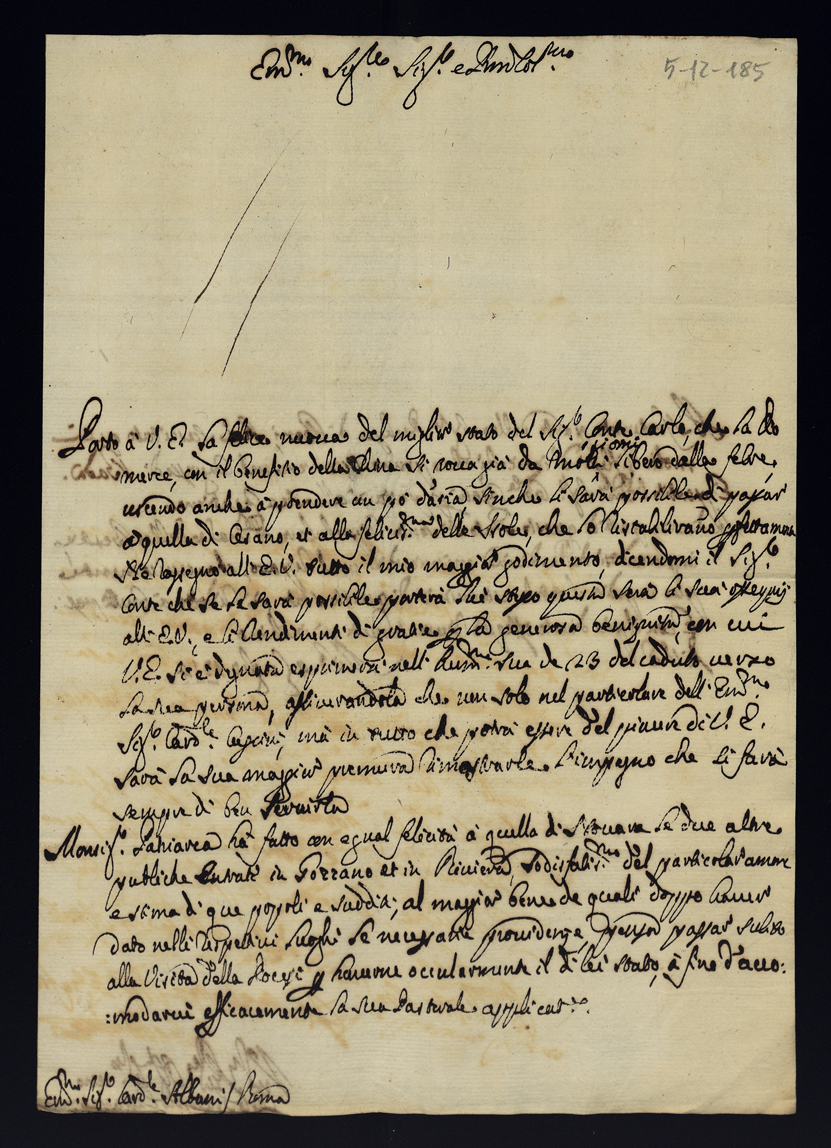 Em.mo Sig.re Sig.r e Pron Col.mo
5-12-185
Porto à V. E. la felice nuova del miglior stato del Sig.r Conte Carlo, che la Dio
merce, con il benefitio della China si trova già da molti giorni libero dalla febre,
uscendo anche à prendere un pò d'aria, sinche li sarà possibile di passar
à quella di Cesano, et alla felicis.ma delle Isole, che lo ristabiliranno perfettamente
Ne rassegno all'E. V. tutto il mio maggior godimento, dicendomi il Sig.r
Conte che se le sarà possibile porterà lui stesso questa sera li suoi ossequij
all'E. V., e li rendimenti di gratie per la generosa benignità, con cui
V. E. si è dignata esprimersi nell' sua de 23 del caduto verso
la sua persona, assicurandola che non solo nel particolare dell'Em.mo
Sig.r Card.le, mà in tutto che potrà essere del piacere di V. E.
sarà la sua maggior premura dimostrarle l'impegno che si farà
sempre di ben servirla
Monsig.r Patriarca hà fatto con egual felicità à quella di Novara le due altre
publiche entrate in Gozzano et in Riviera, sodisfatis.mo del particolar amore
e stima di que popoli e sudditi, al maggior bene de quali doppo haver
dato nelli rispettivi luoghi le necessarie providenze, pensa passar subito
alla Visita della Diocesi per haverne occularmente il di lei stato, à fine d'acco:
:modarvi efficacemente la sua Pastorale applicat.ne.
Em.mo Sig.r Card.le Albani / Roma